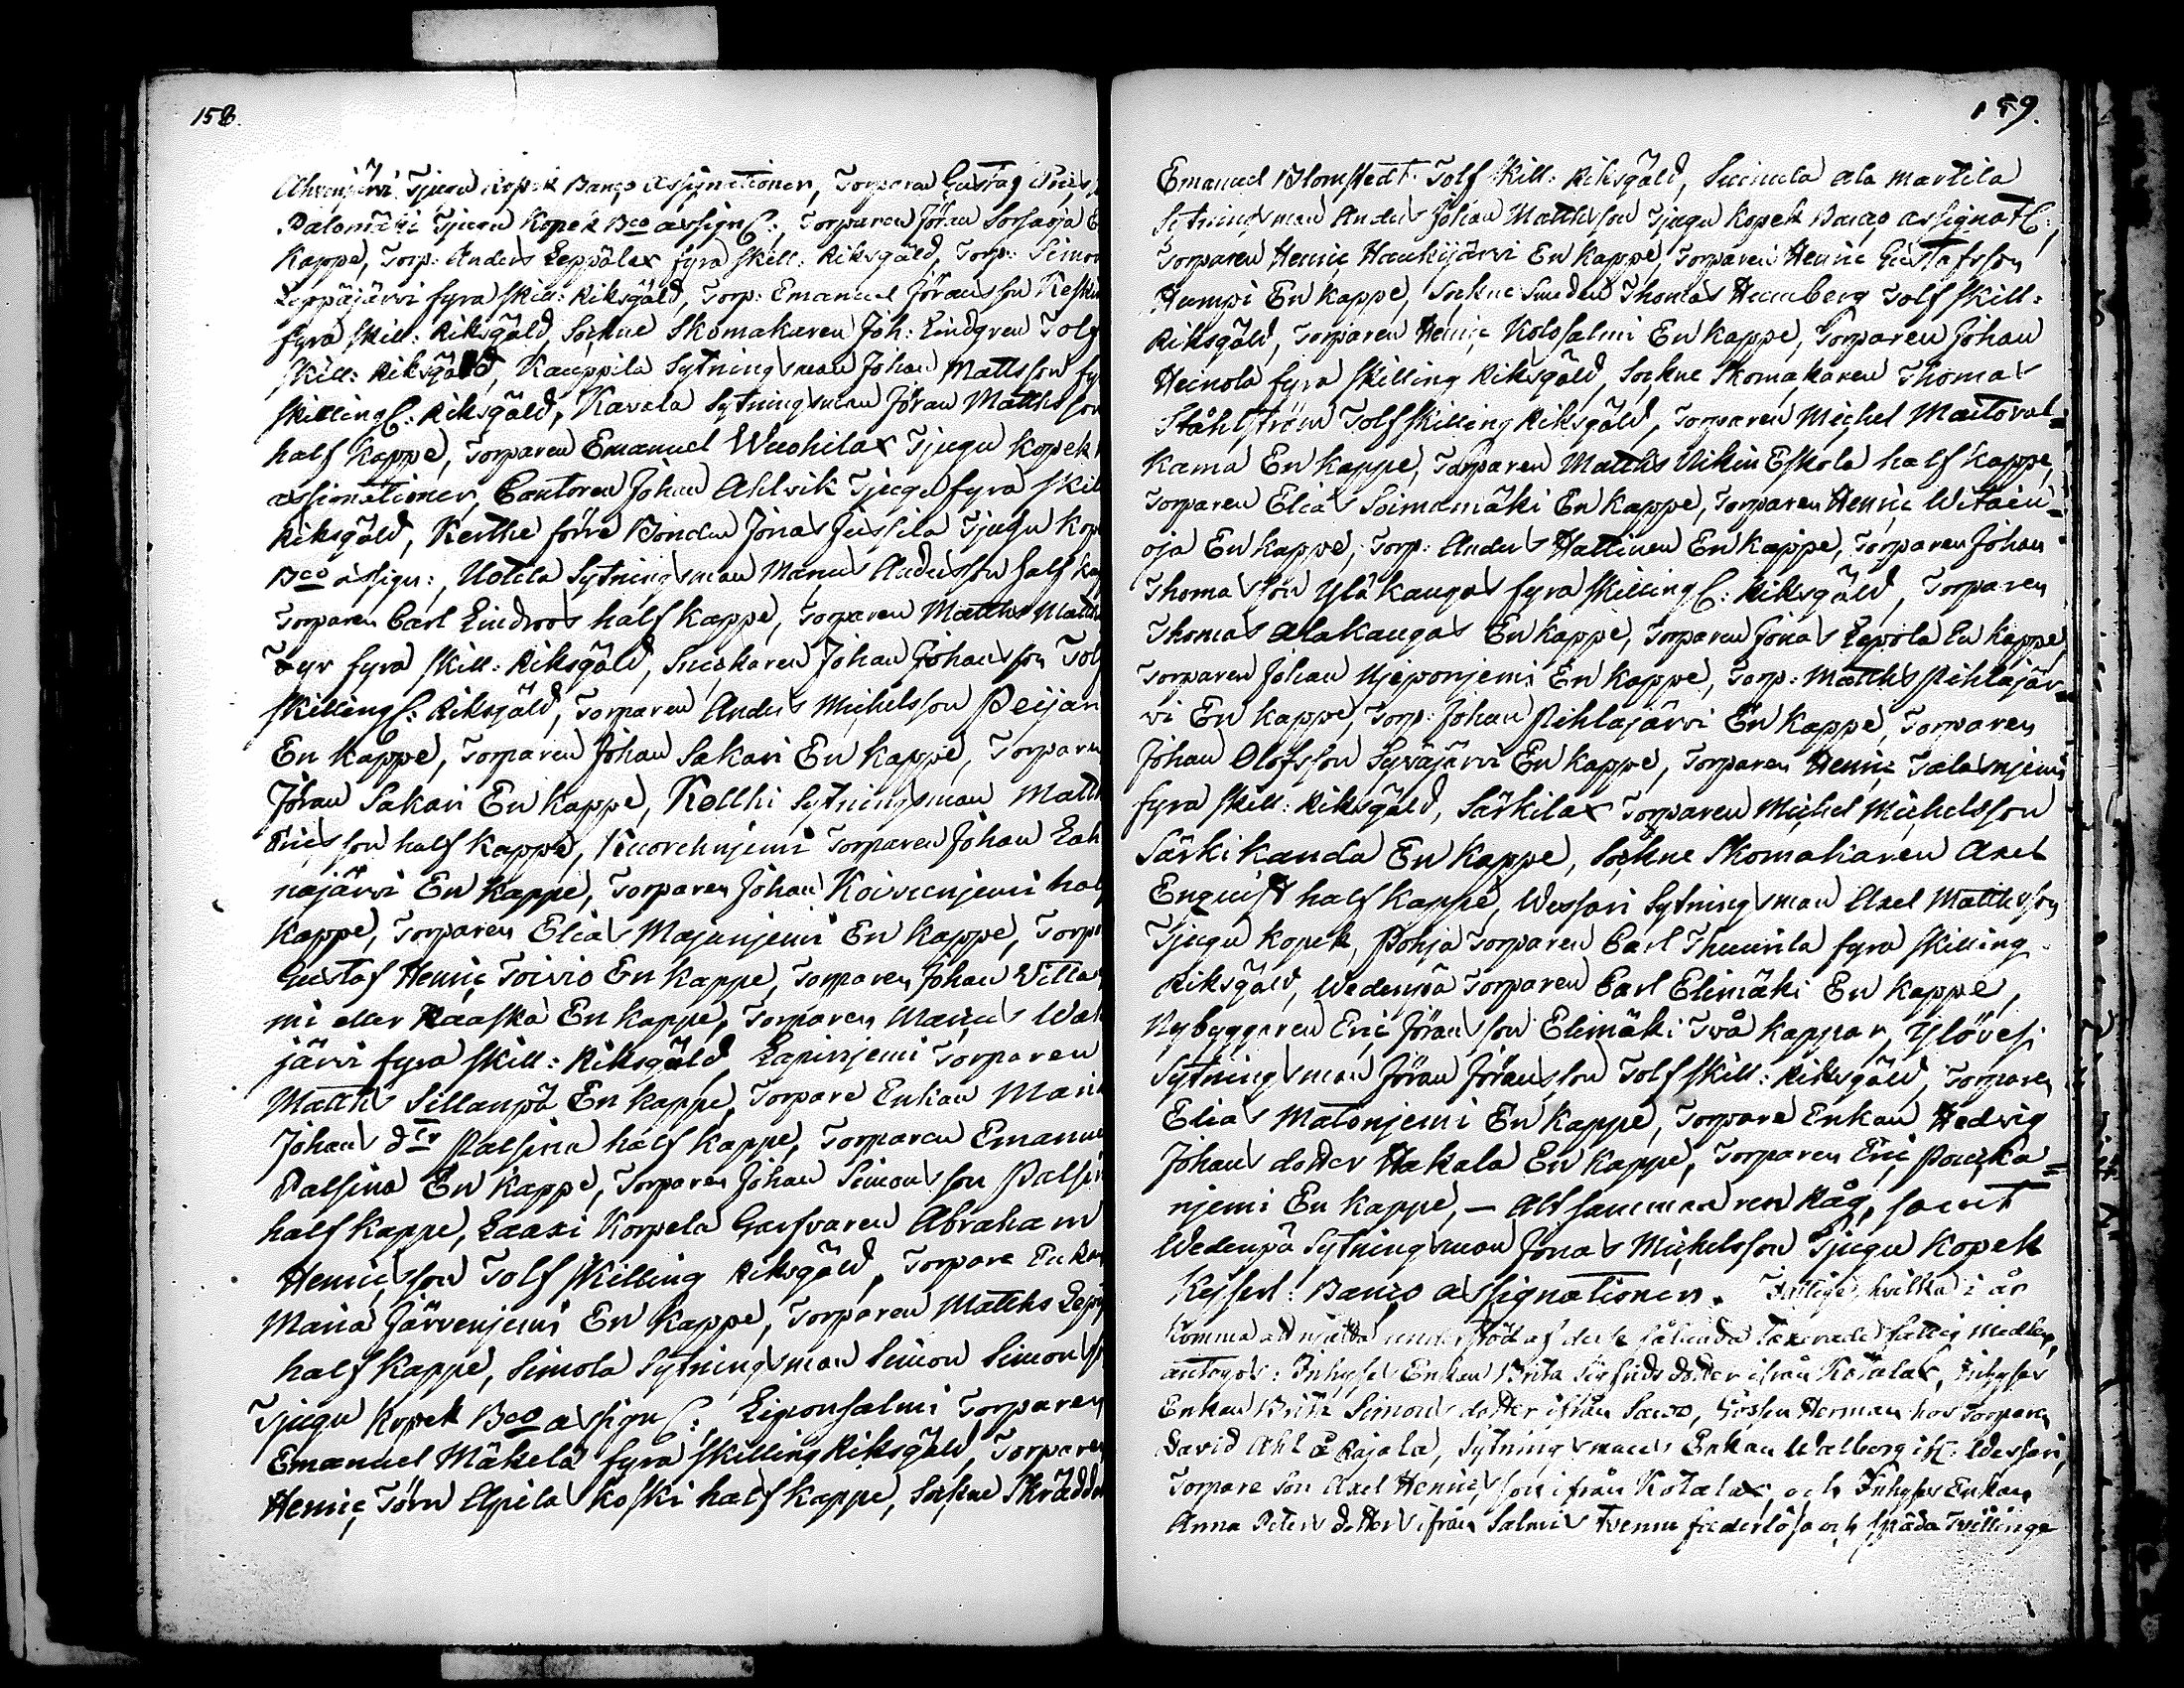 158.
Ahvenjärvi Tjugu Kopek Banco Assignationer, Torparen Gustaf Erics
Palomäki Tjugu Kopek Bco assign:, Torparen Jöran Sorsaoja E
Kappe, Torp: Anders Leppälax fyra skill: Riksgäld, Torp: Simon
Leppäjärvi fyra skill: Riksgäld, Torp: Emanuel Jöransson Keski
fyra skill: Riksgäld, Sockne Skomakaren Joh: Lindgren Tolf
skill: Riksgäld, Kauppila Sytningsman Johan Mattsson fy
skilling: Riksgäld, Kavala Sytningsman Jöran Matthsson
half Kappe, Torparen Emanuel Wuohilax Tjugu Kopek
assignationer, Cantoren Johan Ahlvik Tjugufyra skill
Riksgäld, Kerttu förre Bonden Jonas Jussila Tjugu Kop
Bco assign:, Uotila Sytningsman Marius Andersson half Kap
Torparen Carl Lindroos half Kappe, Torparen Matths Matths
Tyr fyra skill: Riksgäld, Snickaren Johan Johansson Tolf
skilling: Riksgäld, Torparen Anders Michelsson Peijari
En Kappe, Torparen Johan Sakari En Kappe, Torparen
Jöran Sakari En Kappe, Kollki Sytningsman Matths
Ericsson half Kappe, Kuorehnjemi Torparen Johan Lah
najärvi En Kappe, Torparen Johan Koivunjemi half
Kappe, Torparen Elias Majanjemi En Kappe, Torpar
Gustaf Henric Toivio En Kappe, Torparen Johan Willa
mi eller Raaska En Kappe, Torparen Marius Wal
järvi fyra skill: Riksgäld, Lapinjemi Torparen
Matths Sillanpä En Kappe, Torpare Enkan Maria
Johans dtr Palsina half Kappe, Torparen Emanuel
Palsina En Kappe, Torparen Johan Simonsson Palsin
half Kappe, Laaxi Korpela Garfvaren Abraham
Henricsson Tolf skilling Riksgäld, Torpare Enkan
Maria Järvenjemi En Kappe, Torparen Matths Lep
half Kappe, Simola Sytningsman Simon Simonss
Tjugu Kopek Bco assign: Liponsalmi Torparen
Emanuel Mäkelä fyra skilling Riksgäld, Torparen
Henric Törn Alpila Koski half Kappe, Sockne Skrädda
159.
Emanuel Blomstedt Tolf skill: Riksgäld, Suinula ala Martila
Sytningsman Anders Johan Matthsson Tjugu Kopek Banco assignat:,
Torparen Henric Haukijärvi En Kappe, Torparen Henric Gustafsson
Humpi En Kappe, Sockne Smeden Thomas Humberg Tolf skill:
Riksgäld, Torparen Henric Kolssalmi En Kappe, Torparen Johan
Heinola fyra skilling Riksgäld, Sockne Skomakaren Thomas
Ståhlström Tolf skilling Riksgäld, Torparen Michel Maitoval=
kama En Kappe, Torparen Matths Uikin Eskola half Kappe,
Torparen Elias Soimamäki En Kappe, Torparen Henric Witain=
oja En Kappe, Torp: Anders Hattinen En Kappe, Torparen Johan
Thomasson Ylä kangas fyra skilling: Riksgäld, Torparen
Thomas Alakangas En Kappe, Torparen Jonas Lepola En Kappe,
Torparen Johan Njeponjemi En Kappe, Torp: Matths Pihlajär=
vi En Kappe, Torp: Johan Pihlajärvi En Kappe, Torparen
Johan Olofsson Syväjärvi En Kappe, Torparen Henric Talasnjemi
fyra skill: Riksgäld, Särkilax Torparen Michel Michelsson
Särkikanda En Kappe, Sockne Skomakaren Axel
Enquist half Kappe, Wessari Sytningsman Axel Matthsson
Tjugu Kopek, Pohja Torparen Carl Thuurila fyra skilling
Riksgäld, Wedenpä Torparen Carl Elimäki En Kappe,
Nybyggaren Eric Jöransson Elimäki Två Kappar, Ylövesi
Sytningsman Jöran Jöransson Tolf skill: Riksgäld, Torparen
Elias Matonjemi En Kappe, Torpare Enkan Hedvig
Johans dotter Hakala En Kappe, Torparen Eric Paucka=
njemi En Kappe, – Alt sammans ren Råg, samt
Wedenpä Sytningsman Jonas Michelsson Tjugu Kopek
Kejserl: Banco assignationer. Fattige, hvilka i år
komma att njuta understöd af desse sålunda taxerade fattig medlen,
antogos: Inhyses Enkan Brita Sigfrids dotter ifrån Kotalax, Inhyses
Enkan Brita Simons dotter ifrån Savo, Gossen Herman hos Torparen
David Ahl å Rajala, Sytningsmans Enkan Walborg ifr: Wessari,
Torpare Son Axel Henricsson ifrån Kotalax, och Inhyses Enkan
Anna Peters dotters ifrån Salmis tvenne faderlösa och späda Tvillinge